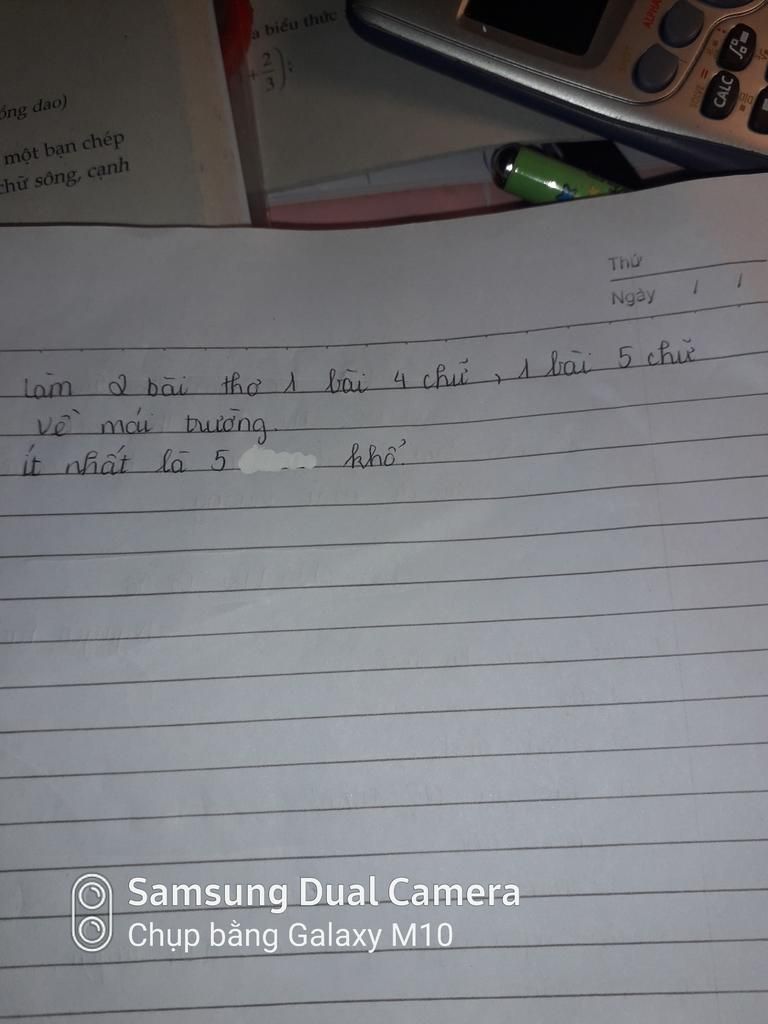 a biểu thức
+ 2/3);
ổng dao)
một bạn chép
chữ sông, cạnh
ALPHA
CALC
Thứ
Ngày / /
làm 2 bài thơ 1 bài 4 chữ, 1 bài 5 chữ
về mái trường.
ít nhất là 5 khổ.
Samsung Dual Camera
Chụp bằng Galaxy M10